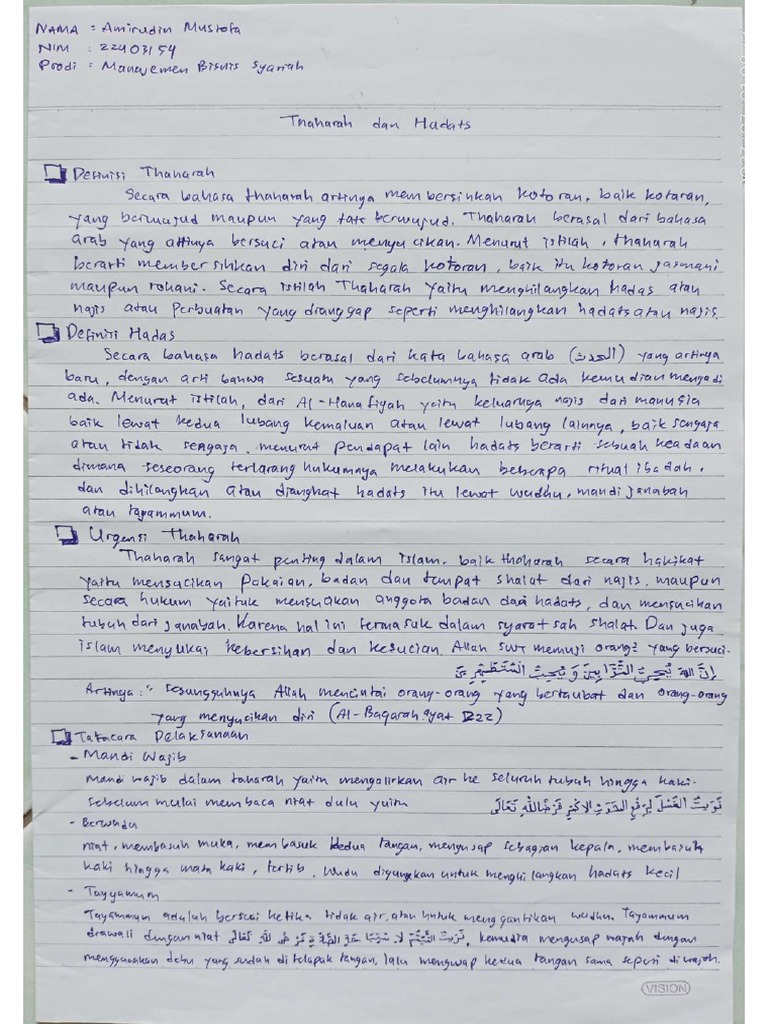 NAMA : Amirudin Mustofa
NIM : 22403154
Prodi : Manajemen Bisnis Syariah
Thaharah dan Hadats
Definisi Thaharah
Secara bahasa thaharah artinya membersihkan kotoran, baik kotoran,
yang berwujud maupun yang tats berwujud. Thaharah berasal dari bahasa
arab yang artinya bersuci atau menyucikan. Menurut istilah, thaharah
berarti membersihkan diri dari segala kotoran, baik itu kotoran jasmani
maupun rohani. Secara istilah Thaharah yaitu menghilangkan hadas atau
najis atau Perbuatan yang dianggap seperti menghilangkan hadats atau najis.
Definisi Hadas
Secara bahasa hadats berasal dari kata bahasa arab (الحدث) yang artinya
baru, dengan arti bahwa sesuatu yang sebelumnya tidak ada kemudian menjadi
ada. Menurut istilah, dari Al-Hanafiyah yaitu keluarnya najis dari manusia
baik lewat kedua lubang kemaluan atau lewat lubang lainnya, baik sengaja
atau tidak sengaja. menurut pendapat lain hadats berarti sebuah keadaan
dimana seseorang terlarang hukumnya melakukan beberapa ritual ibadah,
dan dihilangkan atau diangkat hadats itu lewat wudhu, mandi janabah
atau tayammum.
Urgensi Thaharah
Thaharah sangat penting dalam islam. baik thaharah secara hakikat
yaitu mensucikan pakaian, badan dan tempat shalat dari najis, maupun
secara hukum yaituk mensucikan anggota badan dari hadats, dan mensucikan
tubuh dari janabah. Karena hal ini termasuk dalam syarat sah shalat. Dan juga
islam menyukai kebersihan dan kesucian. Allah swt memuji orang2 yang bersuci.
إِنَّ اللهَ يُحِبُّ التَّوَّابِيْنَ وَيُحِبُّ الْمُتَطَهِّرِيْنَ
Artinya : "Sesungguhnya Allah mencintai orang-orang yang bertaubat dan orang-orang
yang menyucikan diri (Al-Baqarah ayat 222)
Tatacara Pelaksanaan
- Mandi Wajib
Mandi wajib dalam taharah yaitu mengalirkan air ke seluruh tubuh hingga kaki.
Sebelum mulai membaca niat dulu yaitu نَوَيْتُ الْغُسْلَ لِرَفْعِ الْحَدَثِ الْاَكْبَرِ فَرْضًا لِلّٰهِ تَعَالَى
- Berwudu
niat, membasuh muka, membasuk kedua tangan, mengusap sebagian kepala, membasuh
kaki hingga mata kaki, tertib. Wudu digunakan untuk menghilangkan hadats kecil
- Tayyamum
Tayammum adalah bersuci ketika tidak air, atau untuk menggantikan wudhu. Tayammum
diawali dengan niat نَوَيْتُ التَّيَمُّمَ تَعَالَى, kemudia mengusap wajah dengan
menggunakan debu yang sudah di telapak tangan, lalu mengusap kedua tangan sama seperti di wajah.
VISION